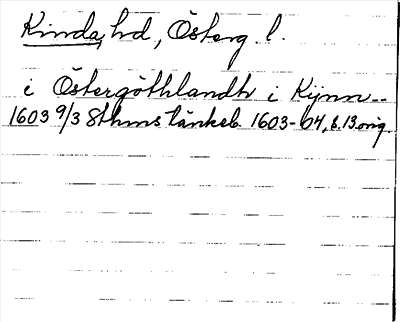 Kinda, hd, Österg. l.
i Östergöthlandh i Kijnn--
1603 9/3 Sthms tänkeb. 1603-04, s. 13 orig.